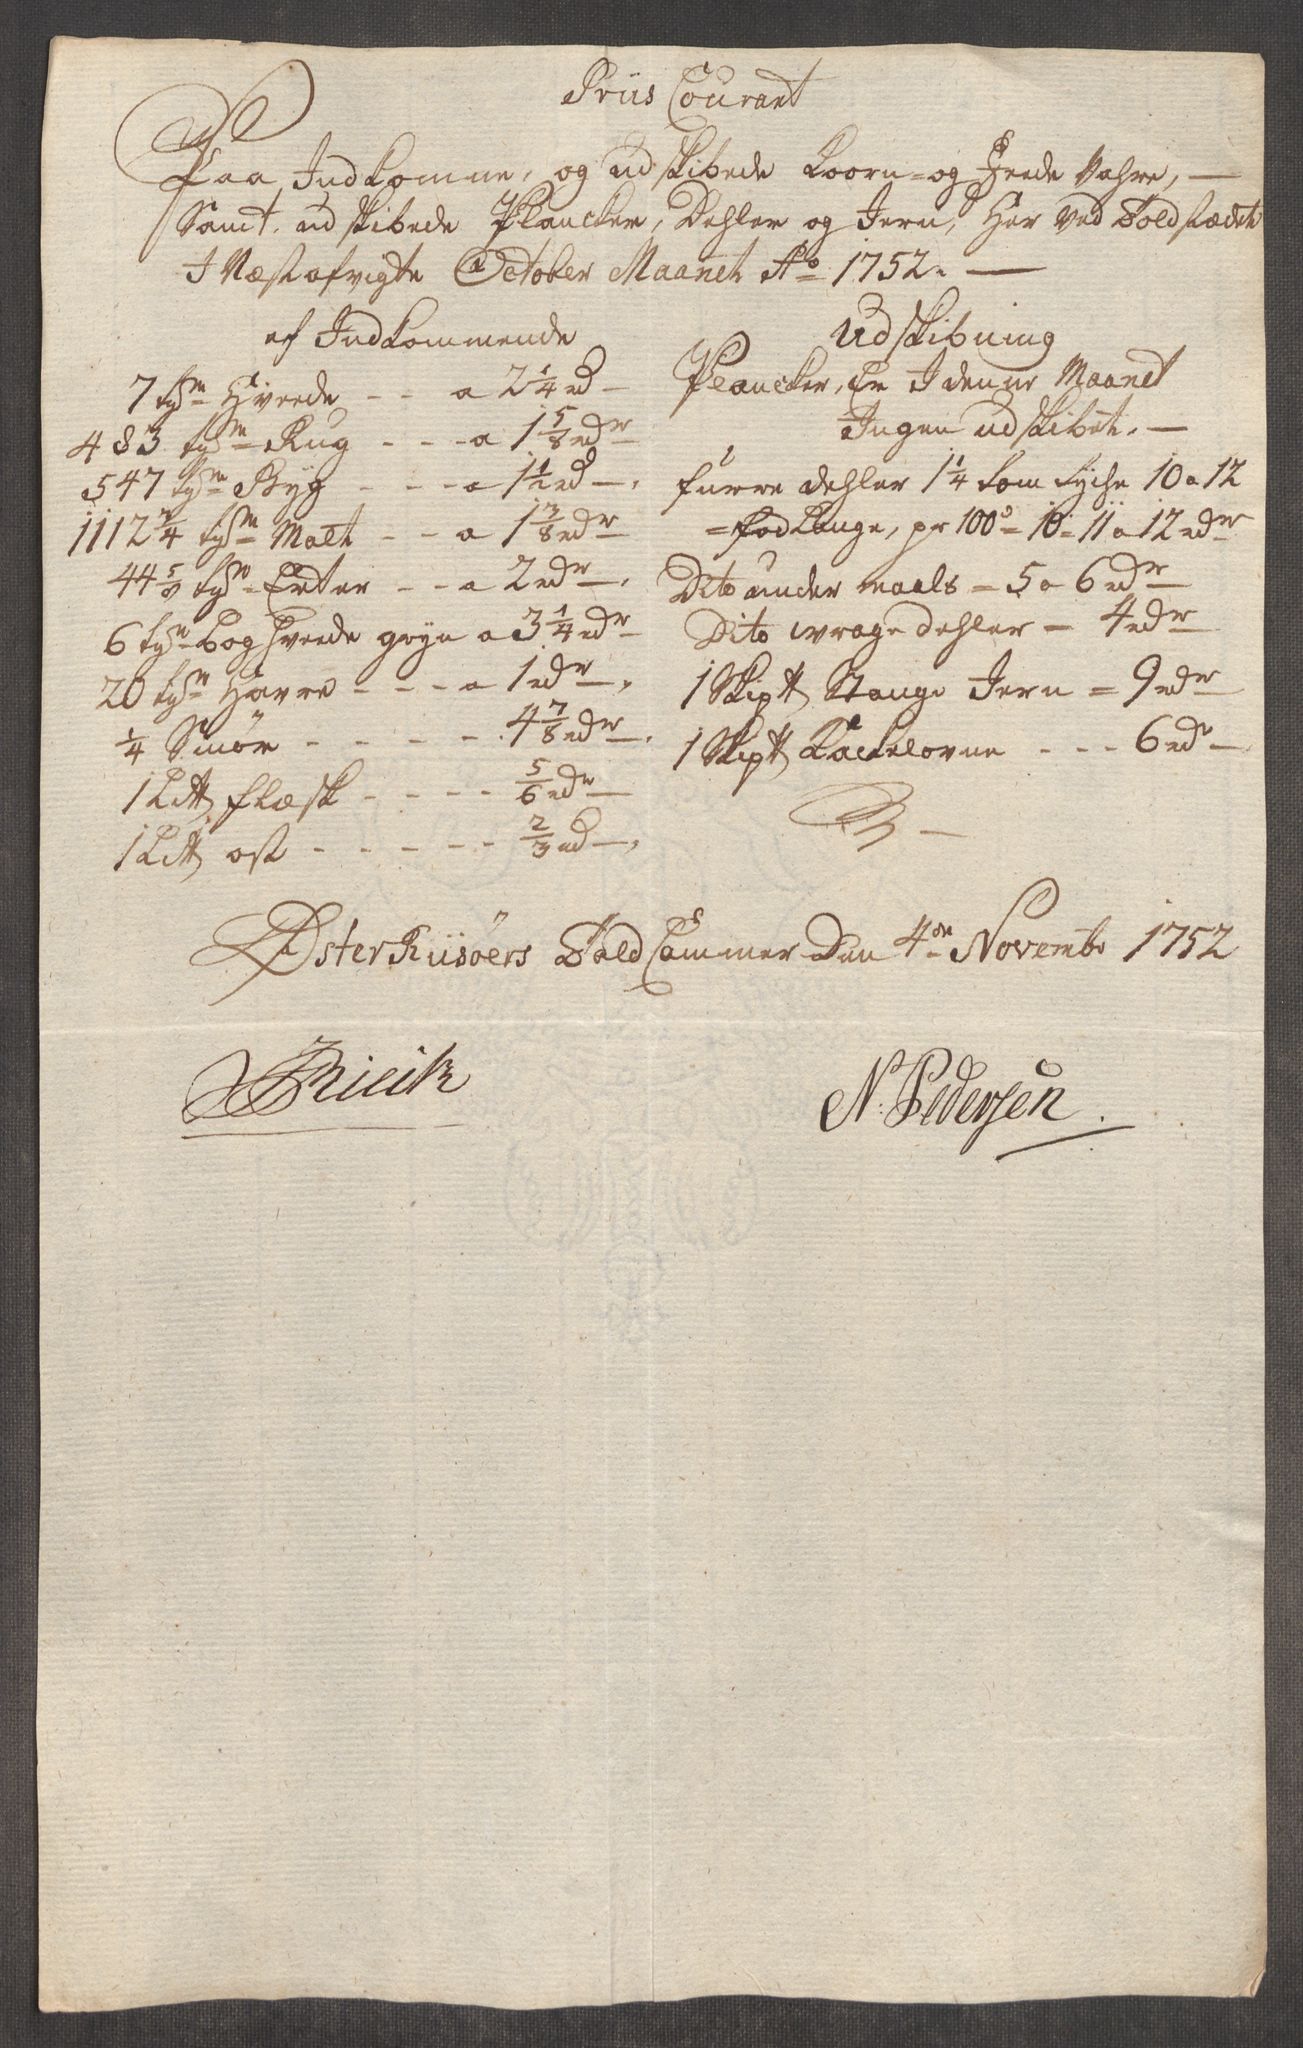 Priis Courant
Paa Indkomne, og udskibede Koorn- og Fede Vahre, —
Samt. udskibede Plancker, Dehler og Jern, Her Ved Toldstædet
I Næstafvigte October Maanet Ao 1752. —
af Indkommende
7 tør Hvede - - a 2 1/4 rd —
483 tør Rug - - - a 1 5/8 rdr
547 tør Byg - - - a 1 1/2 rd —.
1112 3/4 tør Malt - - a 1 7/8 rdr
44 5/8 tør Erter - - a 2 rdr.
6 tør boghvede gryn a 3 1/4 rdr
20 tør Havre - - - a 1 rdr.
1/4 Smør - - - - - 4 7/8 rdr.
1 L℔ flæsk - - - - 5/6 rdr
1 L℔ ost - - - - - 2/3 rd —.
Udskibning
Plancker, Er I denne Maanet
Ingen udskibet. —
furre dehler 1 1/4 tom tyche 10 a 12
= fod Lange, pr 100de = 10 = 11 a 12 rdr
Dito under maals = 5 a 6 rdr
Dito wrage dehler = 4 rdr
1 Skip℔ Stange Jern = 9 rdr
1 Skip℔ Kackelovne - - - 6 rdr
Øster Riisøers Told Cammer Den 4de Novembr 1752
N: Pedersen.